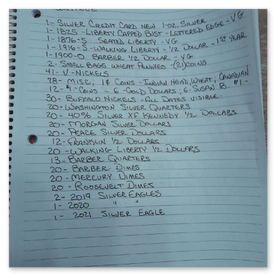 1- Silver Credit Card New 1-oz. Silver
1- 1825- Liberty Capped Bust - Lettered Edge - VG
1- 1876-S Seated Liberty - VG
1- 1916-S - Walking Liberty 1/2 Dollar - 1st Year
1- 1900-O Barber 1/2 Dollar - VG
2- Small Bags Wheat Pennies
41- V-Nickels
78- Misc. 1¢ Coins - Indian Head, Wheat, Canadian
12- Coins - 6-Gold Dollars, 6-Susan B. $1-
30- Buffalo Nickels - All Dates Visible
20- Washington Silver Quarters
20- 40% Silver XF Kennedy 1/2 Dollars
20- Morgan Silver Dollars
20- Peace Silver Dollars
12- Franklin 1/2 Dollars
20- Walking Liberty 1/2 Dollars
13- Barber Quarters
20- Barber Dimes
20- Mercury Dimes
20- Roosevelt Dimes
2- 2019 Silver Eagles
1- 2020 " "
1- 2021 Silver Eagle